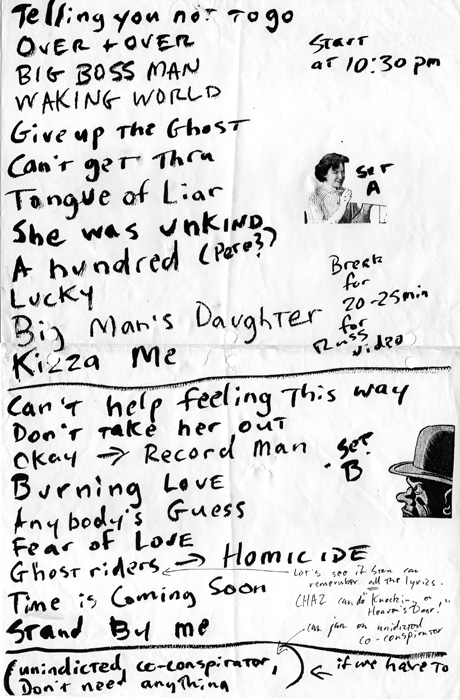 Telling you not to go
OVER + OVER
START
at 10:30 pm
BIG BOSS MAN
WAKING WORLD
Give up The Ghost
Can't get Thru
SET
A
Tongue of Liar
She was UNKIND
A hundred (Pere?)
Break
for
20-25min
for
Russ
video
Lucky
Big Man's Daughter
Kizza Me
Can't help feeling This way
Don't Take her out
Okay → Record Man
SET
B
Burning Love
Anybody's Guess
Fear of LOVE
Ghost riders → HOMICIDE
Let's see if Stan can
remember all the lyrics.
Time is Coming Soon
CHAZ can do "Knocking on
Heaven's Door!"
Stand By me
can jam on unidicted
co-conspirator
(unindicted co-conspirator,
Don't need anything)
← if we have to